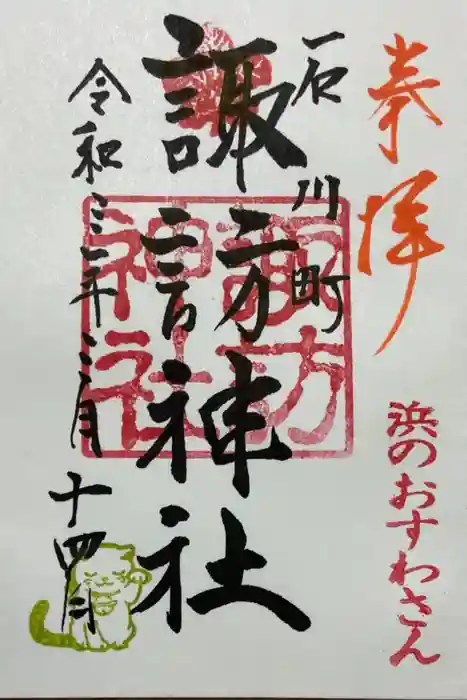 奉拝
浜のおすわさん
石川町
諏訪神社
諏方
神社
令和三年三月十四日